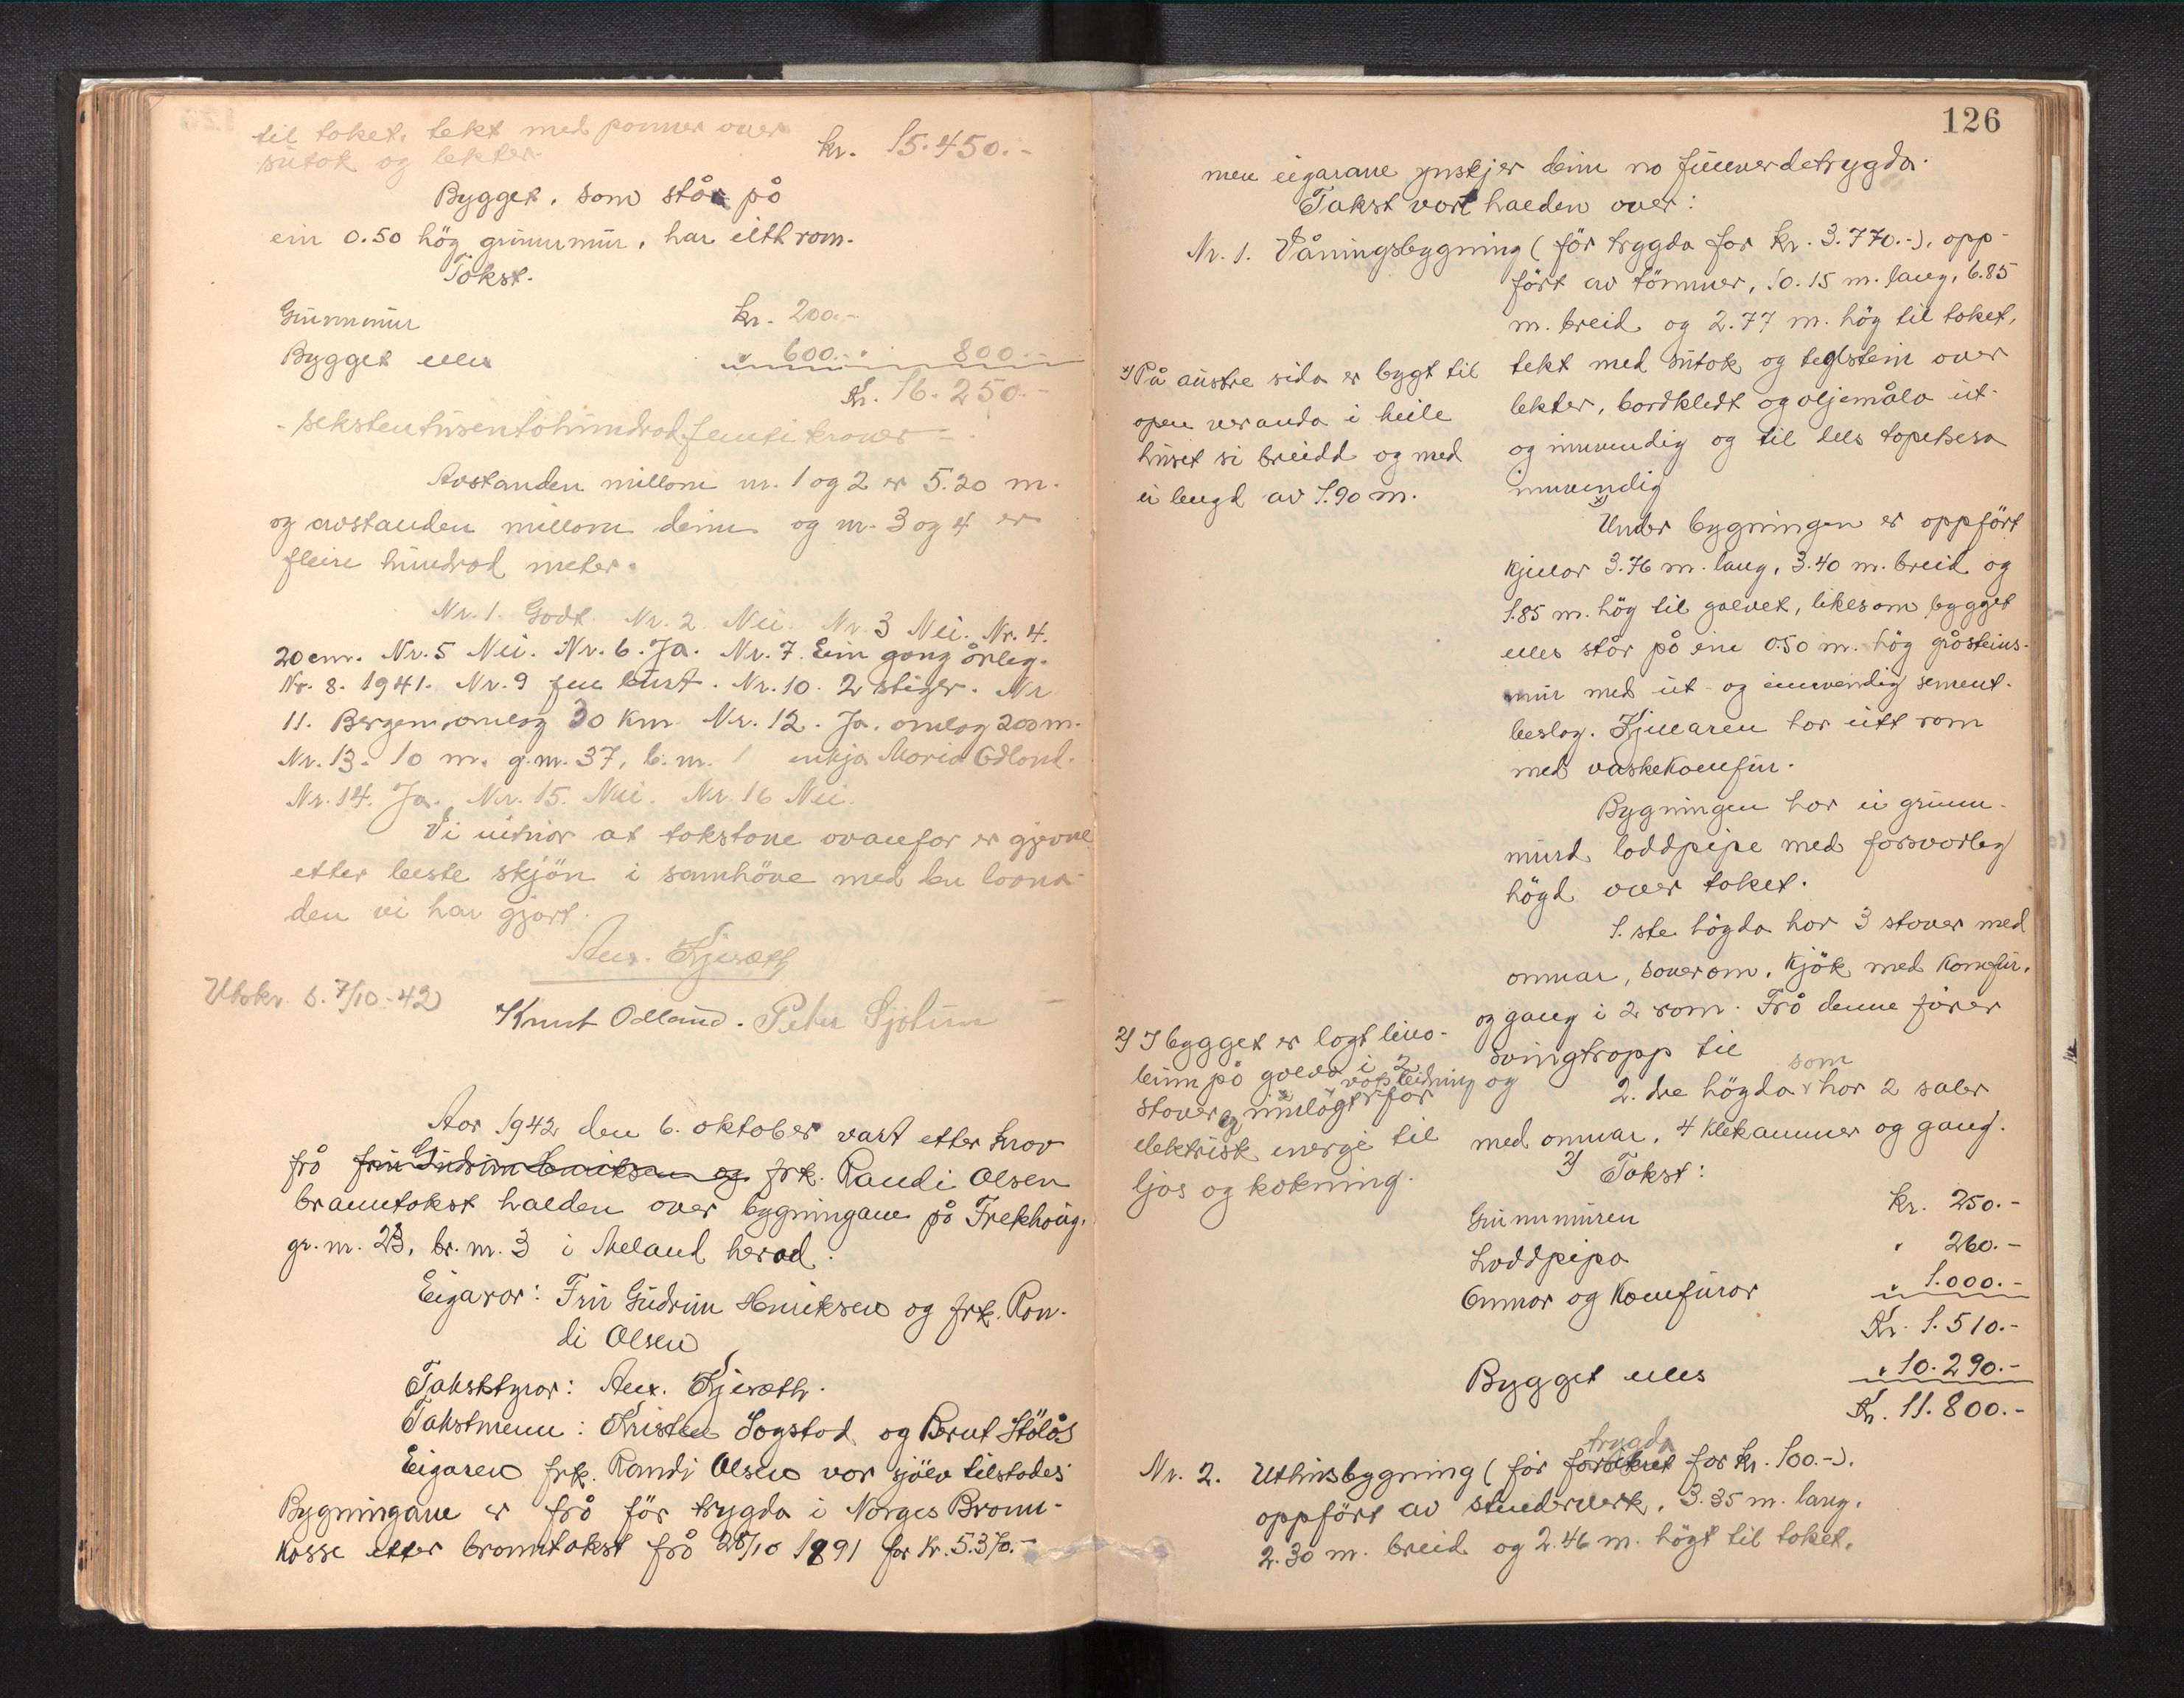 til taket, tekt med panner over
sutak og lekter. kr. 15.450.-
Bygget, som står på
ein 0.50 hög grunnmur, har eitt rom.
Takst.
Grunnmur kr. 200.-
Bygget elles " 600.- " 800.-
Kr. 16.250.-
- sekstentusentohundradfemti kroner -
Avstanden millom nr. 1 og 2 er 5.20 m.
og avstanden millom deim og nr. 3 og 4 er
fleire hundrad meter.
Nr. 1. Godt. Nr. 2. Nei. Nr. 3 Nei. Nr. 4.
20 cm. Nr. 5 Nei. Nr. 6. Ja. Nr. 7. Ein gong årleg.
Nr. 8. 1941. Nr. 9 Nr. 10. 2 stiger. Nr.
11. Bergen, omlag 30 km. Nr. 12. Ja, omlag 200 m.
Nr. 13. 10 m. g.nr. 37, b.nr. 1 enkja Maria Odland.
Nr. 14. Ja. Nr. 15. Nei. Nr. 16 Nei.
Vi vitnar at takstane ovanfor er gjevne
etter beste skjön i samhöve med den lovna-
den vi har gjort.
Anx. Kjeræth
Utskr. s. 7/10-42)
Knut Odland. Peter Sjøtun
Aar 1942 den 6. oktober vart etter krav
frå fru Gudrun Henriksen og frk. Randi Olsen
branntakst halden over bygningane på Frekhaug,
gr. nr. 23, br. nr. 3 i Meland herad:
Eigarar: Fru Gudrun Henriksen og frk. Ran-
di Olsen
Takststyrar: Anx. Kjeræth.
Takstmenn: Kristen Sagstad og Bernt Stölås
Eigaren frk. Randi Olsen var sjölv tilstades
Bygningane er frå för trygda i Norges Brann-
kasse etter branntakst frå 25/10 1891 for kr. 5.370.-
126
men eigarane ynskjer deim no fullverdetrygda.
Takst vart halden over:
Nr. 1. Våningsbygning (för trygda for kr. 3.770.-), opp-
fört av tömmer, 10.15 m. lang, 6.85
m. breid og 2.77 m. hög til taket,
tekt med sutak og teglstein over
lekter, bordkledt og oljemåla ut-
og innvendig og til dels tapetsera
innvendig
1) På austre sida er bygt til
open veranda i heile
huset si breidd og med
ei lengd av 1.90 m.
1) Under bygningen er oppfört
kjellar 3.76 m. lang, 3.40 m. breid og
1.85 m. hög til golvet, likesom bygget
elles står på ein 0.50 m. hög gråsteins-
mur med ut- og innvendig sement-
beslag. Kjellaren har eitt rom
med vaskekomfur.
Bygningen har ei grunn-
murd loddpipe med forsvarleg
högd over taket.
1. ste högda har 3 stover med
omnar, soverom, kjök med komfur,
og gang i 2 rom. Frå denne förer
svingtropp til
2. dre högda som har 2 saler
med omnar, 4 klekammer og gang.
2) I bygget er lagt lino-
leum på golva i 2
stover og innlagt vatsleidning og for
elektrisk energi til
ljos og kokning.
2) Takst:
Grunnmuren kr. 250.-
Loddpipa " 260.-
Omnar og komfurar " 1.000.-
Kr. 1.510.-
Bygget elles " 10.290.-
Kr. 11.800.-
Nr. 2. Uthusbygning (för forsikret trygda for kr. 100.-).
oppfört av stenderverk, 3.35 m. lang,
2.30 m. breid og 2.46 m. högt til taket,